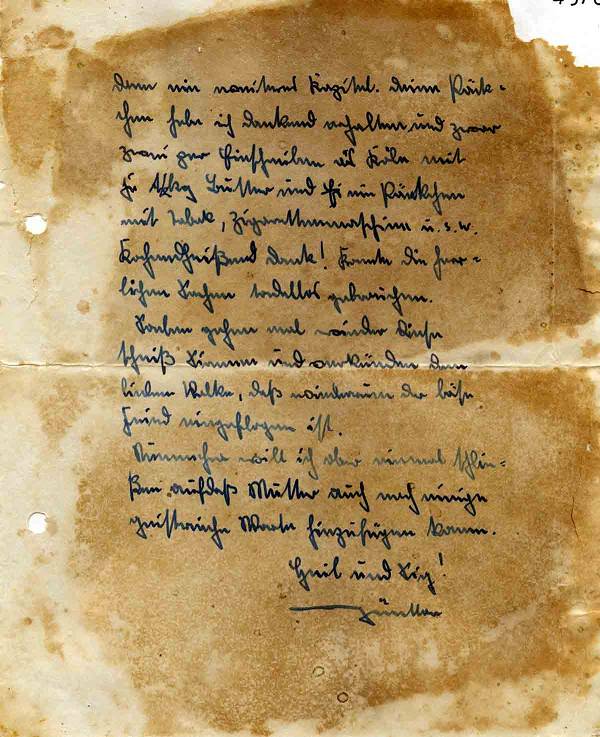 denn ein weiteres Kapitel. Deine Päck-
chen habe ich dankend erhalten und zwar
zwei per Einschreiben aus Köln mit
je ½ kg Butter und ein Päckchen
mit Tabak, Zigarettenmaschine u.s.w.
Kochendheißend Dank! Konnte die herr-
lichen Sachen tadellos gebrauchen.
Soeben gehen mal wieder diese
scheiß Sirenen und verkünden dem
lieben Volke, daß wiederum der böse
Feind eingeflogen ist.
Nunmehro will ich aber einmal schlie-
ßen, aufdaß Mutter auch noch einige
geistreiche Worte hinzufügen kann.
Heil und Sieg!
Günther